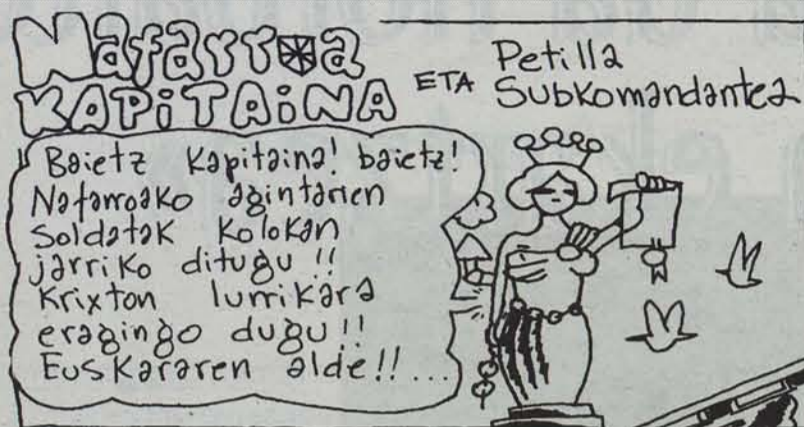 Nafarroa
KAPiTAiNA
ETA
Petilla
Subkomandantea
Baietz Kapitaina! baietz!
Nafarroako agintarien
soldatak kolokan
jarriko ditugu!!
Krixton lurrikara
eragingo dugu!!
Euskararen alde!!...